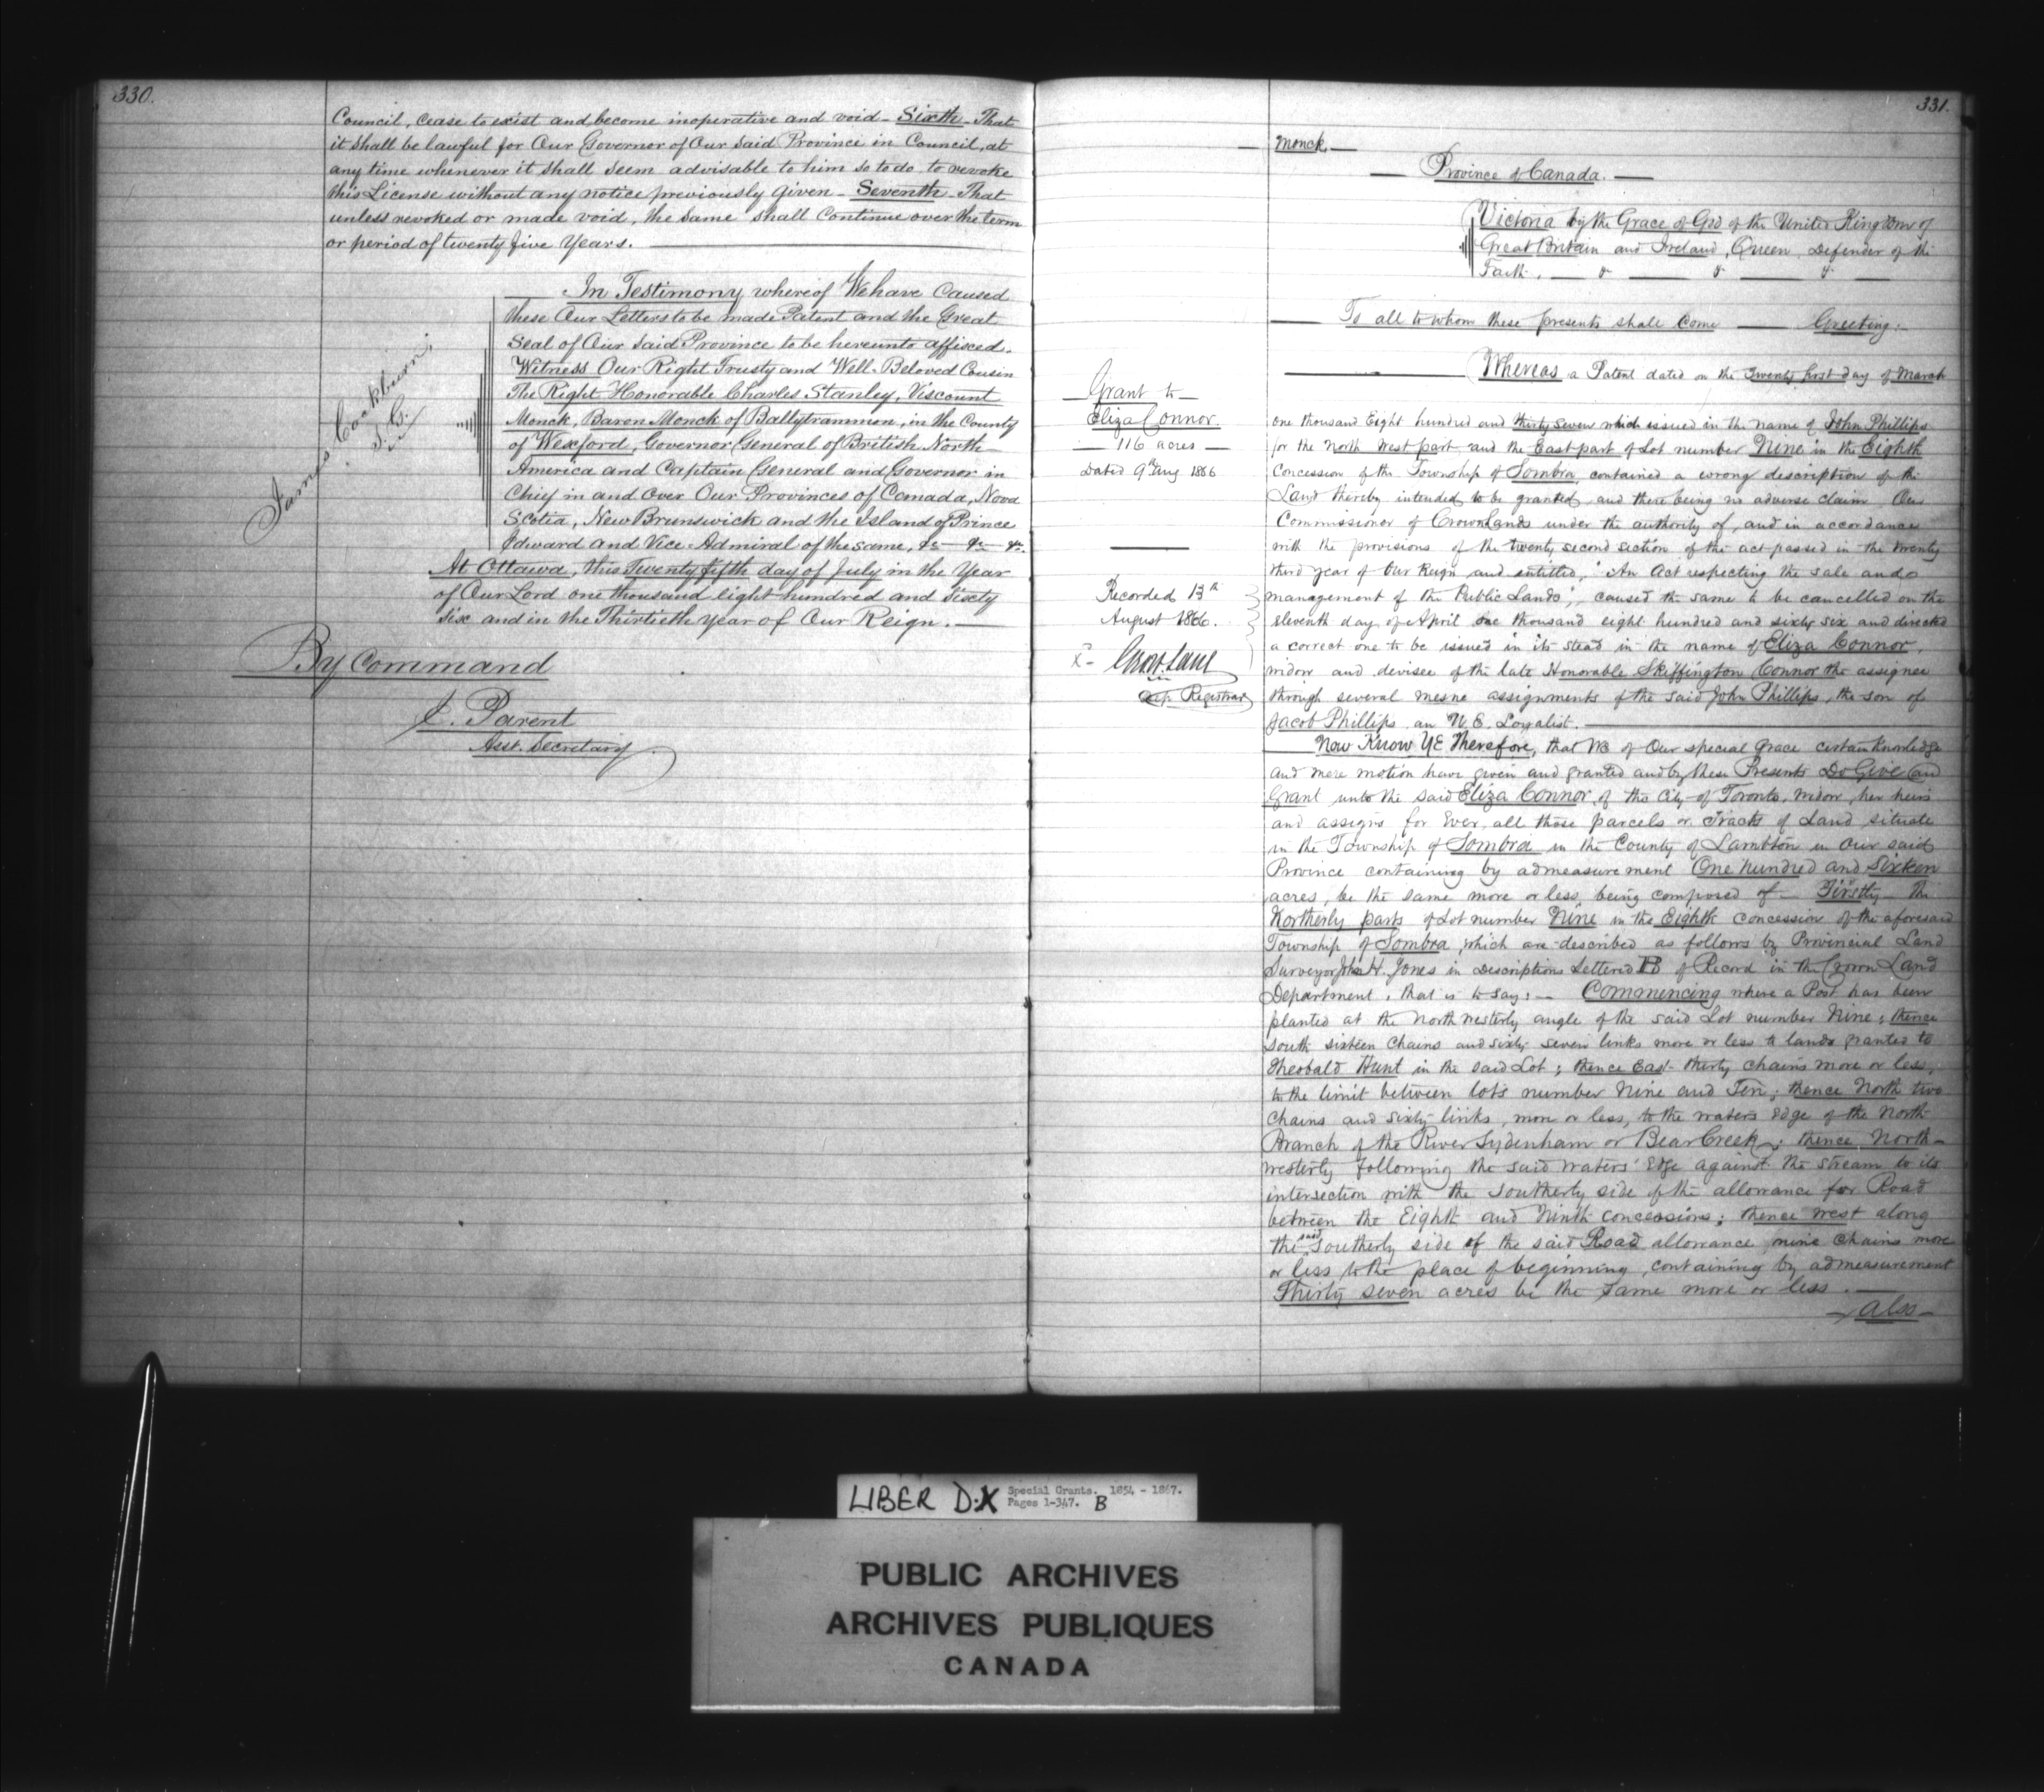 330.
Council, cease to exist and become inoperative and void - Sixth - That
it shall be lawful for Our Governor of Our said Province in Council, at
any time whenever it shall seem advisable to him so to do to revoke
this License without any notice previously given - Seventh - That
unless revoked or made void, the same shall Continue over the term
or period of twenty five Years.
In Testimony whereof We have Caused
these Our Letters to be made Patent and the Great
Seal of Our said Province to be hereunto affixed.
Witness Our Right Trusty and Well-Beloved Cousin
The Right Honorable Charles Stanley, Viscount
Monck, Baron Monck of Ballytrammon, in the County
of Wexford, Governor General of British North
America and Captain General and Governor in
Chief in and Over Our Provinces of Canada, Nova
Scotia, New Brunswick and the Island of Prince
Edward and Vice-Admiral of the same, &c - &c - &c.
James Cockburn,
S. G.
At Ottawa, this Twenty fifth day of July in the Year
of Our Lord one thousand eight hundred and sixty
six and in the Thirtieth year of Our Reign.
By Command
E. Parent
Asst. Secretary
331.
Monck
Province of Canada.
Victoria by the Grace of God of the United Kingdom of
Great Britain and Ireland, Queen, Defender of the
Faith, & & &
To all to whom these presents shall Come Greeting:-
Grant to
Eliza Connor.
116 acres
Dated 9th Aug 1866
Recorded 13th
August 1866.
Dep. Registrar
Whereas a Patent dated on the twenty first day of March
one thousand Eight hundred and thirty seven which issued in the name of John Phillips
for the North West part and the East part of Lot number Nine in the Eighth
Concession of the Township of Sombra, contained a wrong description of the
Land thereby intended to be granted, and there being no adverse claim Our
Commissioner of Crown Lands under the authority of, and in accordance
with the provisions of the twenty second section of the act passed in the twenty
third year of Our Reign and entitled, "An Act respecting the sale and
management of the Public Lands", caused the same to be cancelled on the
eleventh day of April one thousand eight hundred and sixty six and directed
a correct one to be issued in its stead in the name of Eliza Connor,
widow and devisee of the late Honorable Skeffington Connor the assignee
through several mesne assignments of the said John Phillips, the son of
Jacob Phillips an U. E. Loyalist.
Now Know Ye Therefore, that We of Our special Grace certain Knowledge
and mere motion have given and granted and by these Presents Do Give and
Grant unto the said Eliza Connor of the City of Toronto, widow, her heirs
and assigns for Ever, all those parcels or Tracts of Land situate
in the Township of Sombra in the County of Lambton in Our said
Province containing by admeasurement One hundred and Sixteen
acres, be the same more or less, being composed of - Firstly - The
Northerly parts of Lot number Nine in the Eighth concession of the aforesaid
Township of Sombra, which are described as follows by Provincial Land
Surveyor John H. Jones in Descriptions Lettered B of Record in the Crown Land
Department, that is to say:- Commencing where a Post has been
planted at the North Westerly angle of the said Lot number Nine; thence
South sixteen Chains and sixty seven links more or less to lands granted to
Theobald Hunt in the said Lot; thence East thirty chains more or less,
to the limit between lots number Nine and Ten; thence North two
Chains and sixty links, more or less, to the waters edge of the North
Branch of the River Sydenham or Bear Creek; thence North-
westerly following the said waters' Edge against the stream to its
intersection with the Southerly side of the allowance for Road
between the Eighth and Ninth concessions; thence west along
the said Southerly side of the said Road allowance nine chains more
or less to the place of beginning, containing by admeasurement
Thirty seven acres be the same more or less.
- Also -
LIBER D.X Special Grants. 1854 - 1867.
Pages 1-347. B
PUBLIC ARCHIVES
ARCHIVES PUBLIQUES
CANADA